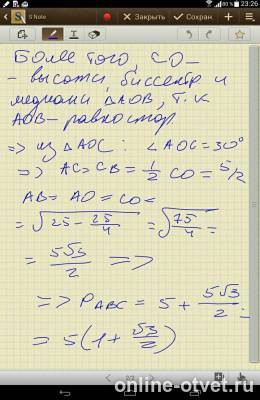 23:26
S Note
Закрыть
Сохран
Более того, CO –
– высота, биссектр и
медиана ΔAOB, т.к
AOB – равностор
=> из ΔAOC: ∠AOC = 30°
=> AC = CB = 1/2 CO = 5/2
AB = AO = CO =
= √(25 - 25/4) = √(75/4) =
= 5√3/2 =>
=> P_ABC = 5 + 5√3/2 =
= 5(1 + √3/2)
online-otvet.ru